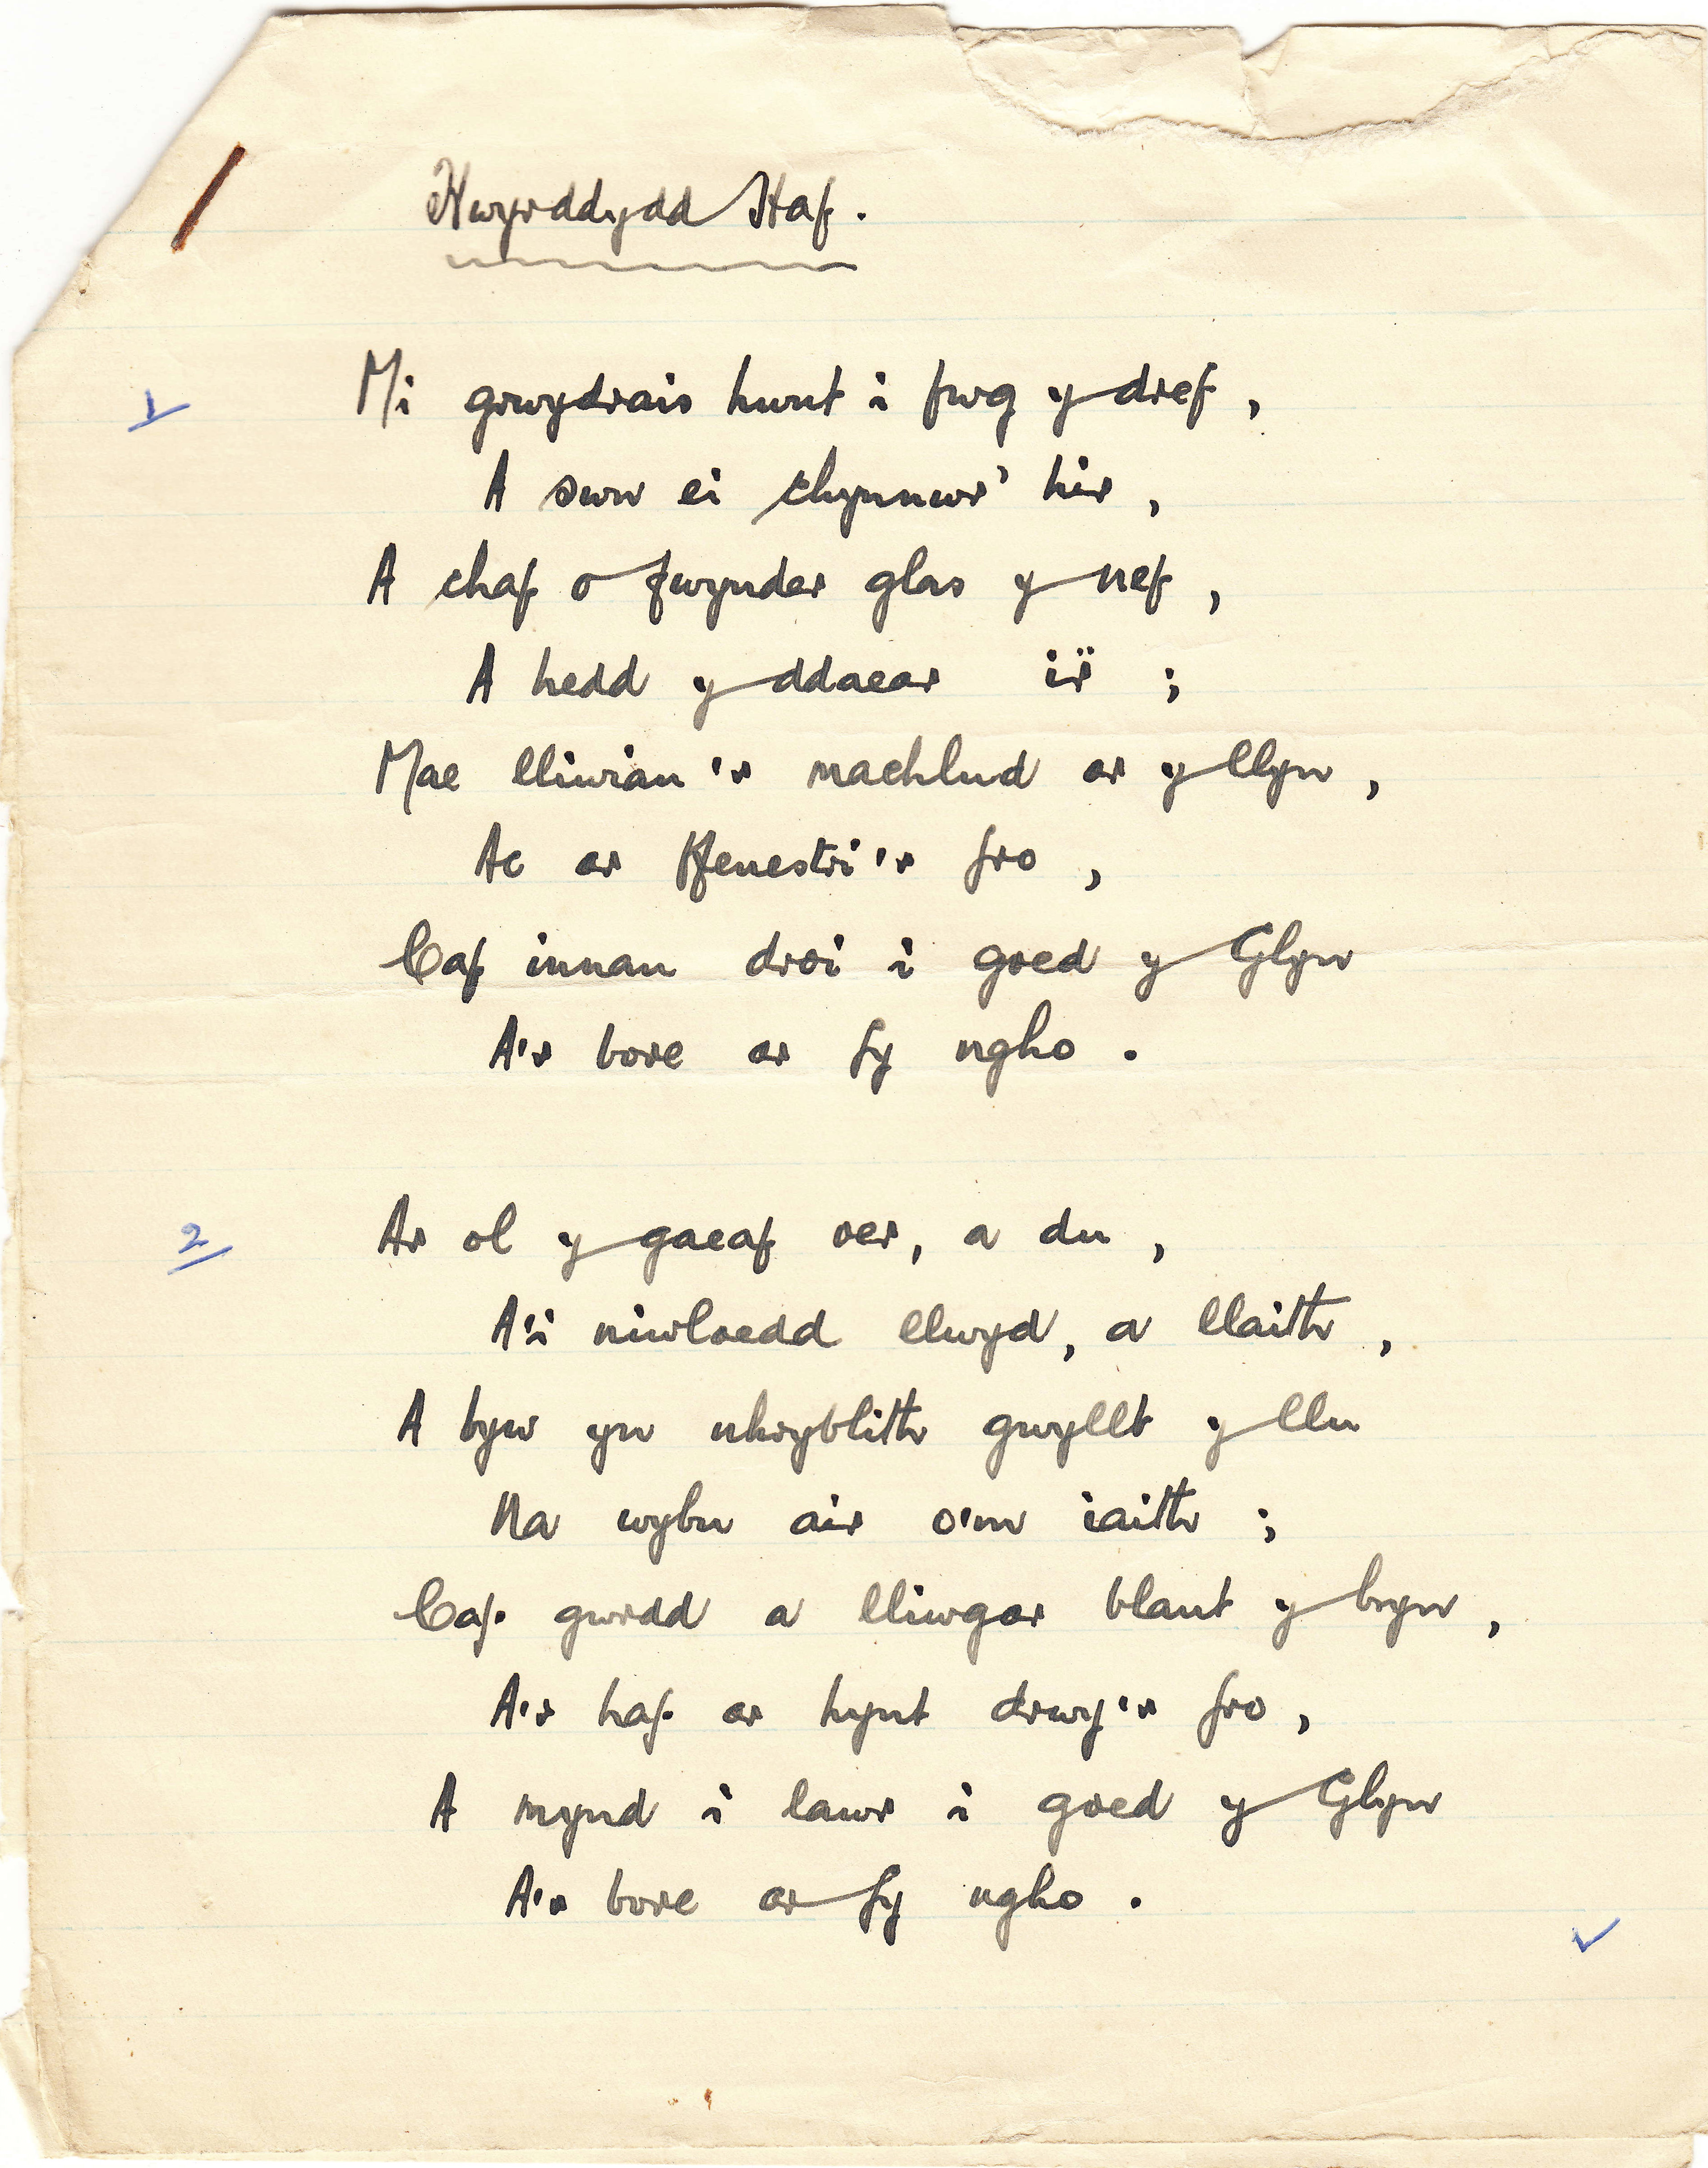 Hwyrddydd Haf.
1
Mi grwydrais hwnt i fwg y dref,
A swn ei chynnwr' hir,
A chaf o fwynder glas y nef,
A hedd y ddaear ïr;
Mae lliwiau'r machlud ar y llyn,
Ac ar ffenestri'r fro,
Caf innau droi i goed y Glyn
A'r bore ar fy ngho.
2
Ar ol y gaeaf oer, a du,
A'i niwloedd llwyd, a llaith,
A byw yn nhryblith gwyllt y llu
Na wybu air o'm iaith;
Caf gwrdd a lliwgar blant y bryn,
A'r haf ar hynt drwy'r fro,
A mynd i lawr i goed y Glyn
A'r bore ar fy ngho.